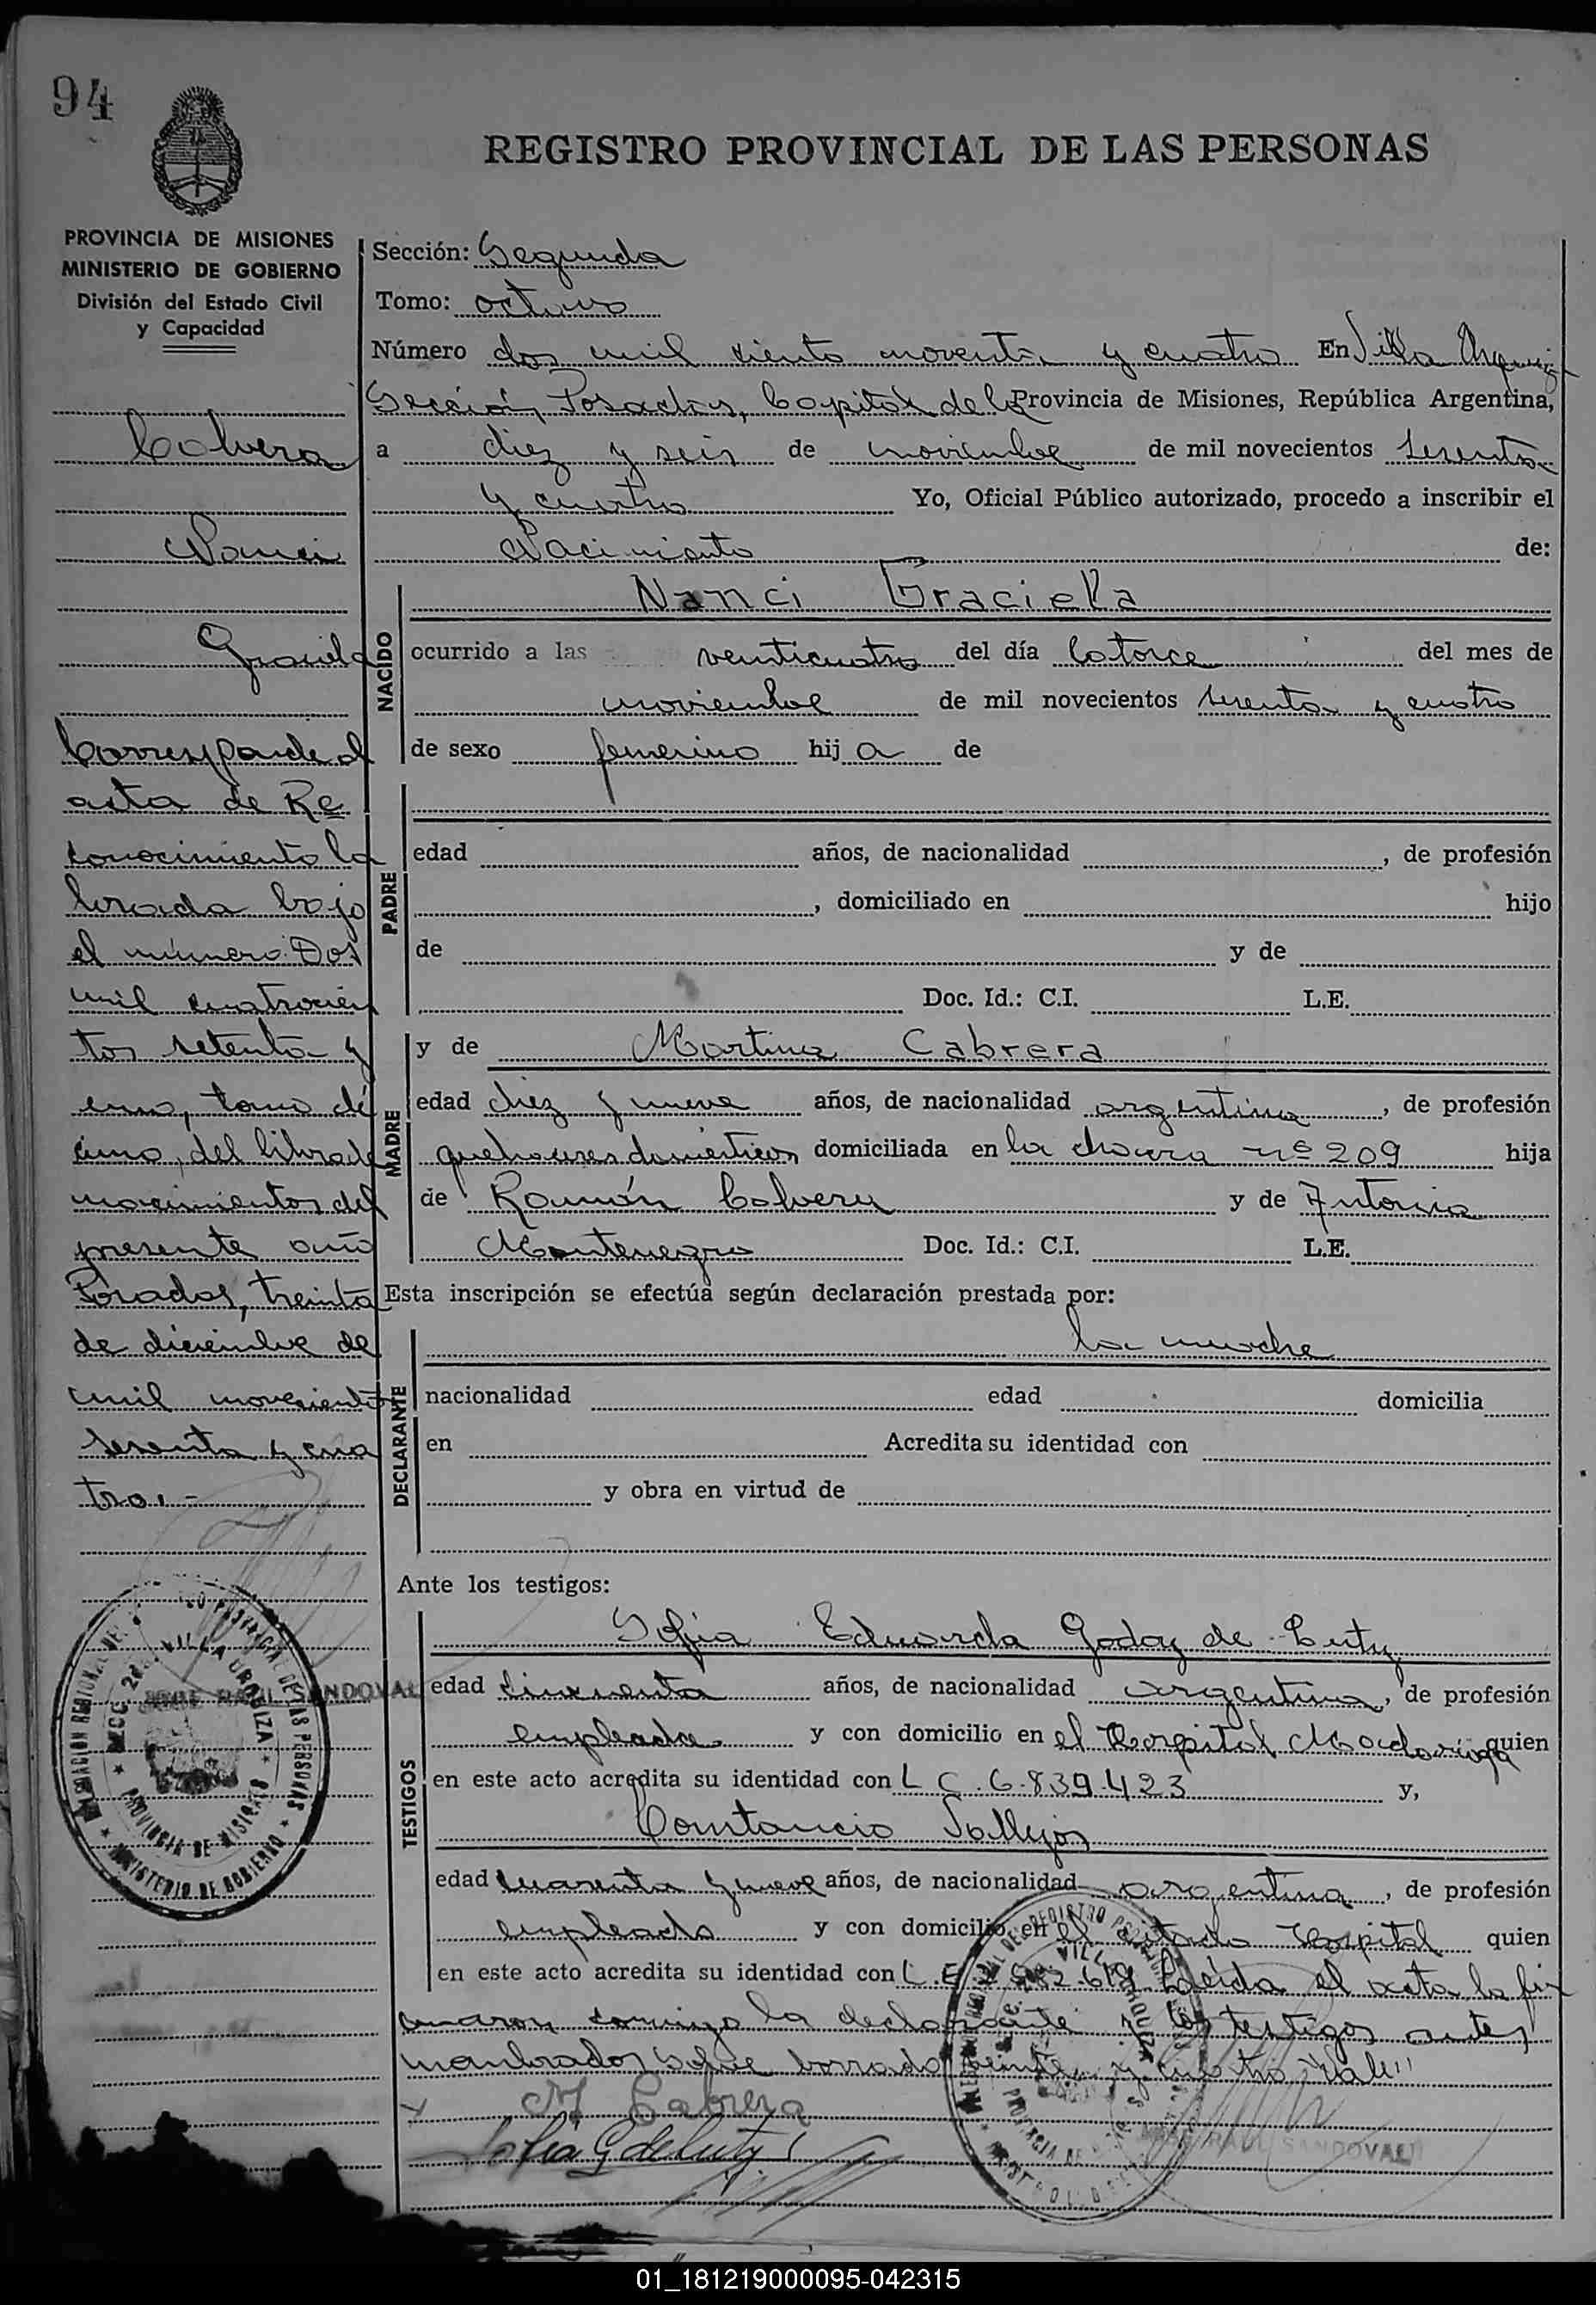 94
REGISTRO PROVINCIAL DE LAS PERSONAS
PROVINCIA DE MISIONES
MINISTERIO DE GOBIERNO
División del Estado Civil
y Capacidad
Cabrera
Nanci
Graciela
Corresponde al
acta de Re
conocimiento la
brada bajo
el número Dos
mil cuatrocien
tos setenta y
uno, tomo dé
cimo, del libro de
nacimientos del
presente año
Posadas, treinta
de diciembre de
mil novecientos
sesenta y cua
tro.-
Sección: Segunda
Tomo: octavo
Número dos mil ciento noventa y cuatro En Villa Urquiza
Sección, Posadas, Capital de la Provincia de Misiones, República Argentina,
a diez y seis de noviembre de mil novecientos sesenta
y cuatro Yo, Oficial Público autorizado, procedo a inscribir el
Nacimiento de:
NACIDO
Nanci Graciela
ocurrido a las veinticuatro del día Catorce del mes de
noviembre de mil novecientos sesenta y cuatro
de sexo femenino hij a de
PADRE
edad años, de nacionalidad , de profesión
, domiciliado en hijo
de y de
Doc. Id.: C.I. L.E.
MADRE
y de Martina Cabrera
edad diez y nueve años, de nacionalidad argentina, de profesión
quehaceres domésticos domiciliada en la chacra nº 209 hija
de Ramón Cabrera y de Antonia
Montenegro Doc. Id.: C.I. L.E.
Esta inscripción se efectúa según declaración prestada por:
DECLARANTE
la madre
nacionalidad edad domicilia
en Acredita su identidad con
y obra en virtud de
Ante los testigos:
TESTIGOS
Sofia Eduarda Godoy de
edad cincuenta años, de nacionalidad argentina, de profesión
empleada y con domicilio en el Hospital Madariaga quien
en este acto acredita su identidad con L C. 6.839.423 y,
Constancio Vallejos
edad cuarenta y nueve años, de nacionalidad argentina, de profesión
empleado y con domicilio en el citado Hospital quien
en este acto acredita su identidad con L.E. Leída el acta la fir
maron conmigo la declarante y los testigos antes
nombrados sobre borrado veinte y cuatro "Vale"
M Cabrera
Sofía G de
RAUL SANDOVAL
RAUL SANDOVAL
SECC. 2da. VILLA URQUIZA
PROVINCIA DE MISIONES
MINISTERIO DE GOBIERNO
01_181219000095-042315